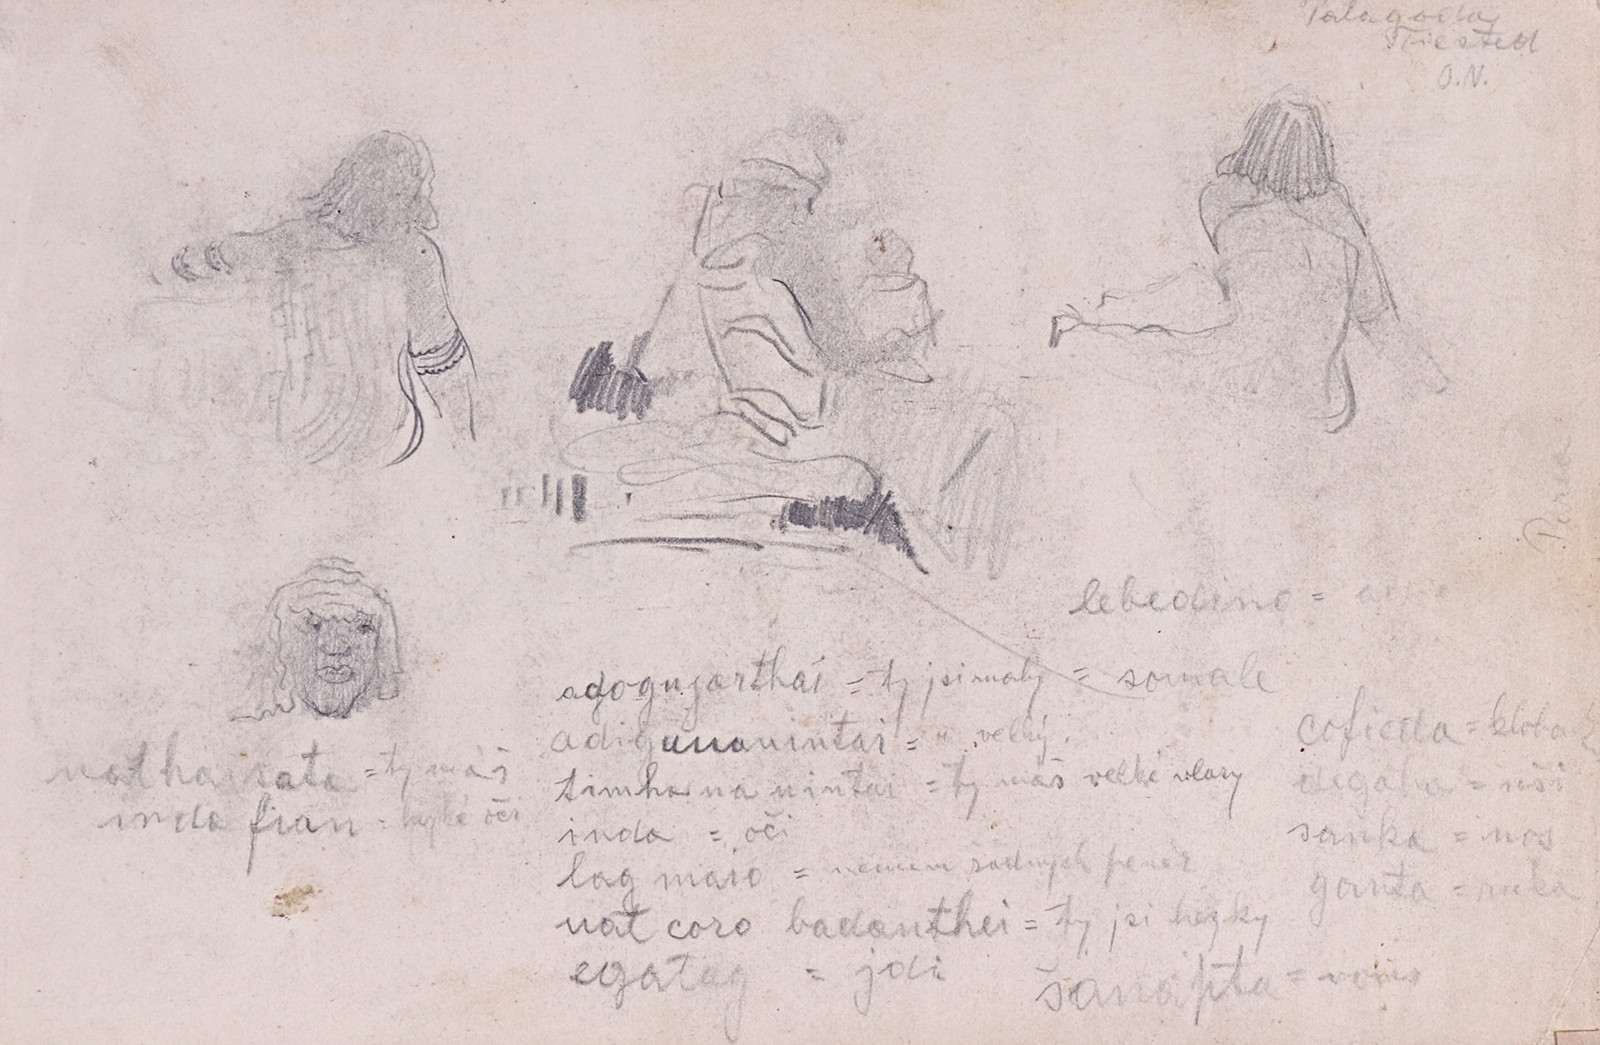 O.N.
lebedino =
adogugarthai = ty jsi malý = somale
adigaunanintai = " velký.
timhana nintai = ty máš velké vlasy
inda = oči
lag maio = nemám žádných peněz
uat coro badanthei = ty jsi hezky
egatag = jdi
šanapta =
= ty máš
inda fian = hezké oči
cofieda = klobouk
degaha = uši
sanka = nos
ganta = ruka